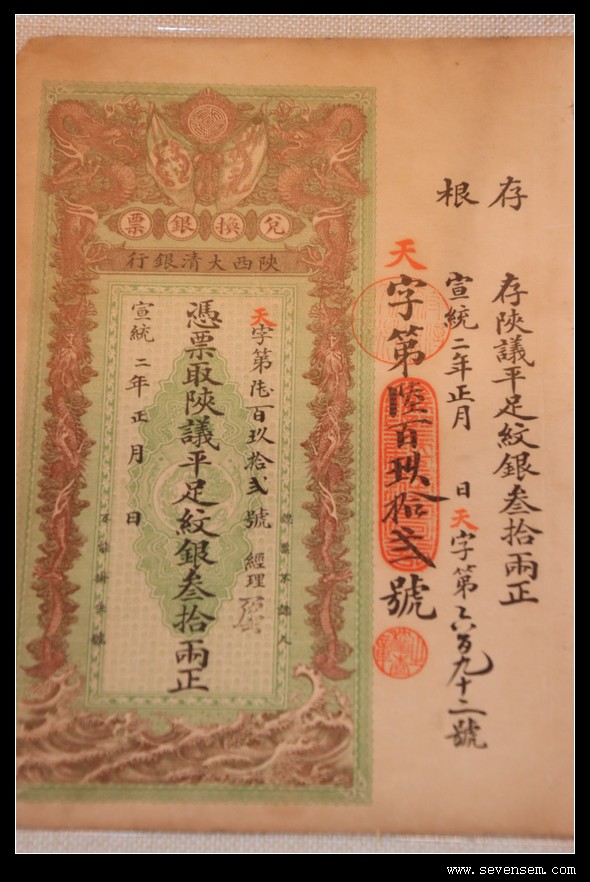 存根
存陝議平足紋銀叁拾兩正
宣統二年正月 日天字第六百九十二號
天字第陸百玖拾貳號
兌換銀票
陝西大清銀行
天字第陸百玖拾貳號 經理
憑票取陝議平足紋銀叁拾兩正
宣統二年正月 日
認票不認人
www.sevensem.com